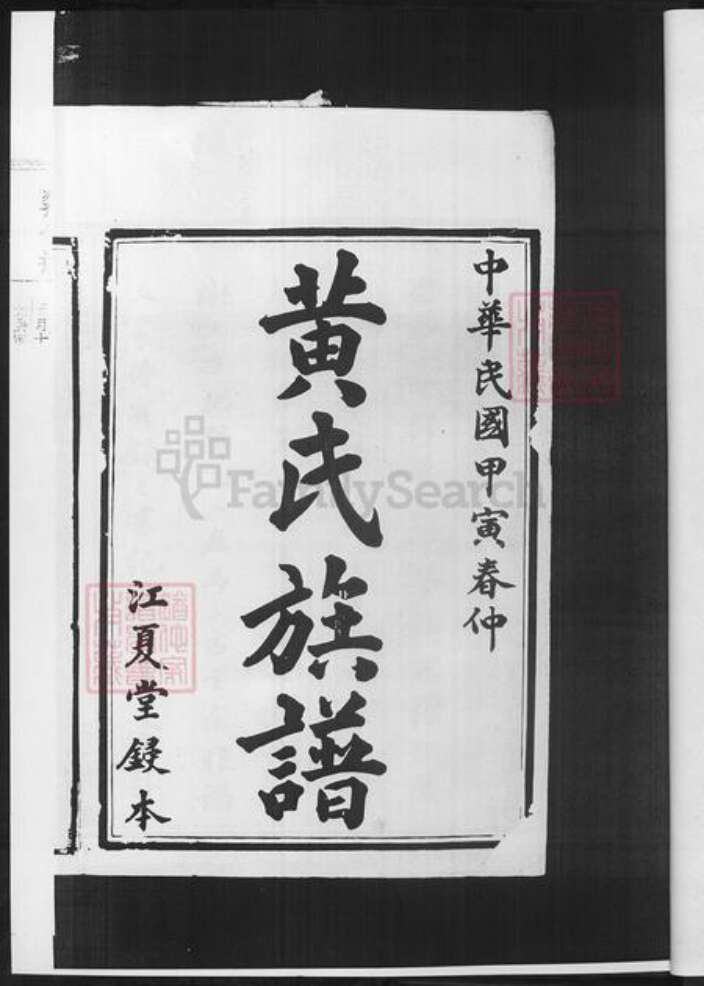 中華民國甲寅春仲
黃氏族譜
江夏堂鋟本
FamilySearch